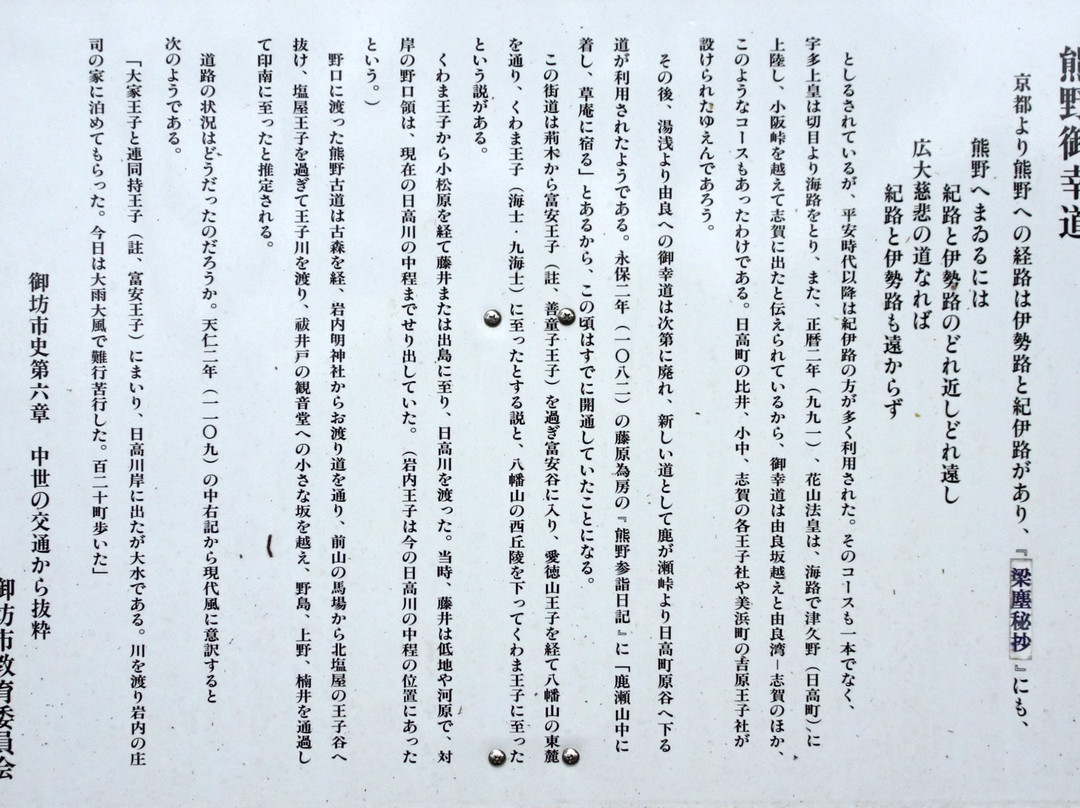 熊野御幸道
京都より熊野への経路は伊勢路と紀伊路があり、『梁塵秘抄』にも、
熊野へまゐるには
紀路と伊勢路のどれ近しどれ遠し
広大慈悲の道なれば
紀路と伊勢路も遠からず
としるされているが、平安時代以降は紀伊路の方が多く利用された。そのコースも一本でなく、
宇多上皇は切目より海路をとり、また、正暦二年（九九一）、花山法皇は、海路で津久野（日高町）に
上陸し、小阪峠を越えて志賀に出たと伝えられているから、御幸道は由良坂越えと由良湾－志賀のほか、
このようなコースもあったわけである。日高町の比井、小中、志賀の各王子社や美浜町の吉原王子社が
設けられたゆえんであろう。
その後、湯浅より由良への御幸道は次第に廃れ、新しい道として鹿が瀬峠より日高町原谷へ下る
道が利用されたようである。永保二年（一〇八二）の藤原為房の『熊野参詣日記』に「鹿瀬山中に
着し、草庵に宿る」とあるから、この頃はすでに開通していたことになる。
この街道は莿木から富安王子（註、善童子王子）を過ぎ富安谷に入り、愛徳山王子を経て八幡山の東麓
を通り、くわま王子（海士・九海士）に至ったとする説と、八幡山の西丘陵を下ってくわま王子に至った
という説がある。
くわま王子から小松原を経て藤井または出島に至り、日高川を渡った。当時、藤井は低地や河原で、対
岸の野口領は、現在の日高川の中程までせり出していた。（岩内王子は今の日高川の中程の位置にあった
という。）
野口に渡った熊野古道は古森を経、岩内明神社からお渡り道を通り、前山の馬場から北塩屋の王子谷へ
抜け、塩屋王子を過ぎて王子川を渡り、祓井戸の観音堂への小さな坂を越え、野島、上野、楠井を通過し
て印南に至ったと推定される。
道路の状況はどうだったのだろうか。天仁二年（一一〇九）の中右記から現代風に意訳すると
次のようである。
「大家王子と連同持王子（註、富安王子）にまいり、日高川岸に出たが大水である。川を渡り岩内の庄
司の家に泊めてもらった。今日は大雨大風で難行苦行した。百二十町歩いた」
御坊市史第六章　中世の交通から抜粋
御坊市教育委員会